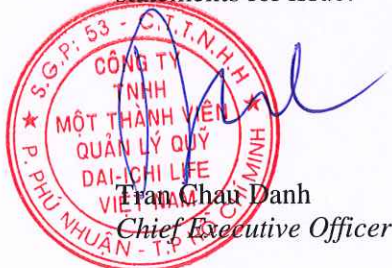 S.G.P: 53 - C.T.T.N.H.H
CÔNG TY
TNHH
MỘT THÀNH VIÊN
QUẢN LÝ QUỸ
DAI-ICHI LIFE
VIỆT NAM
P. PHÚ NHUẬN - T.P HỒ CHÍ MINH
Tran Chau Danh
Chief Executive Officer